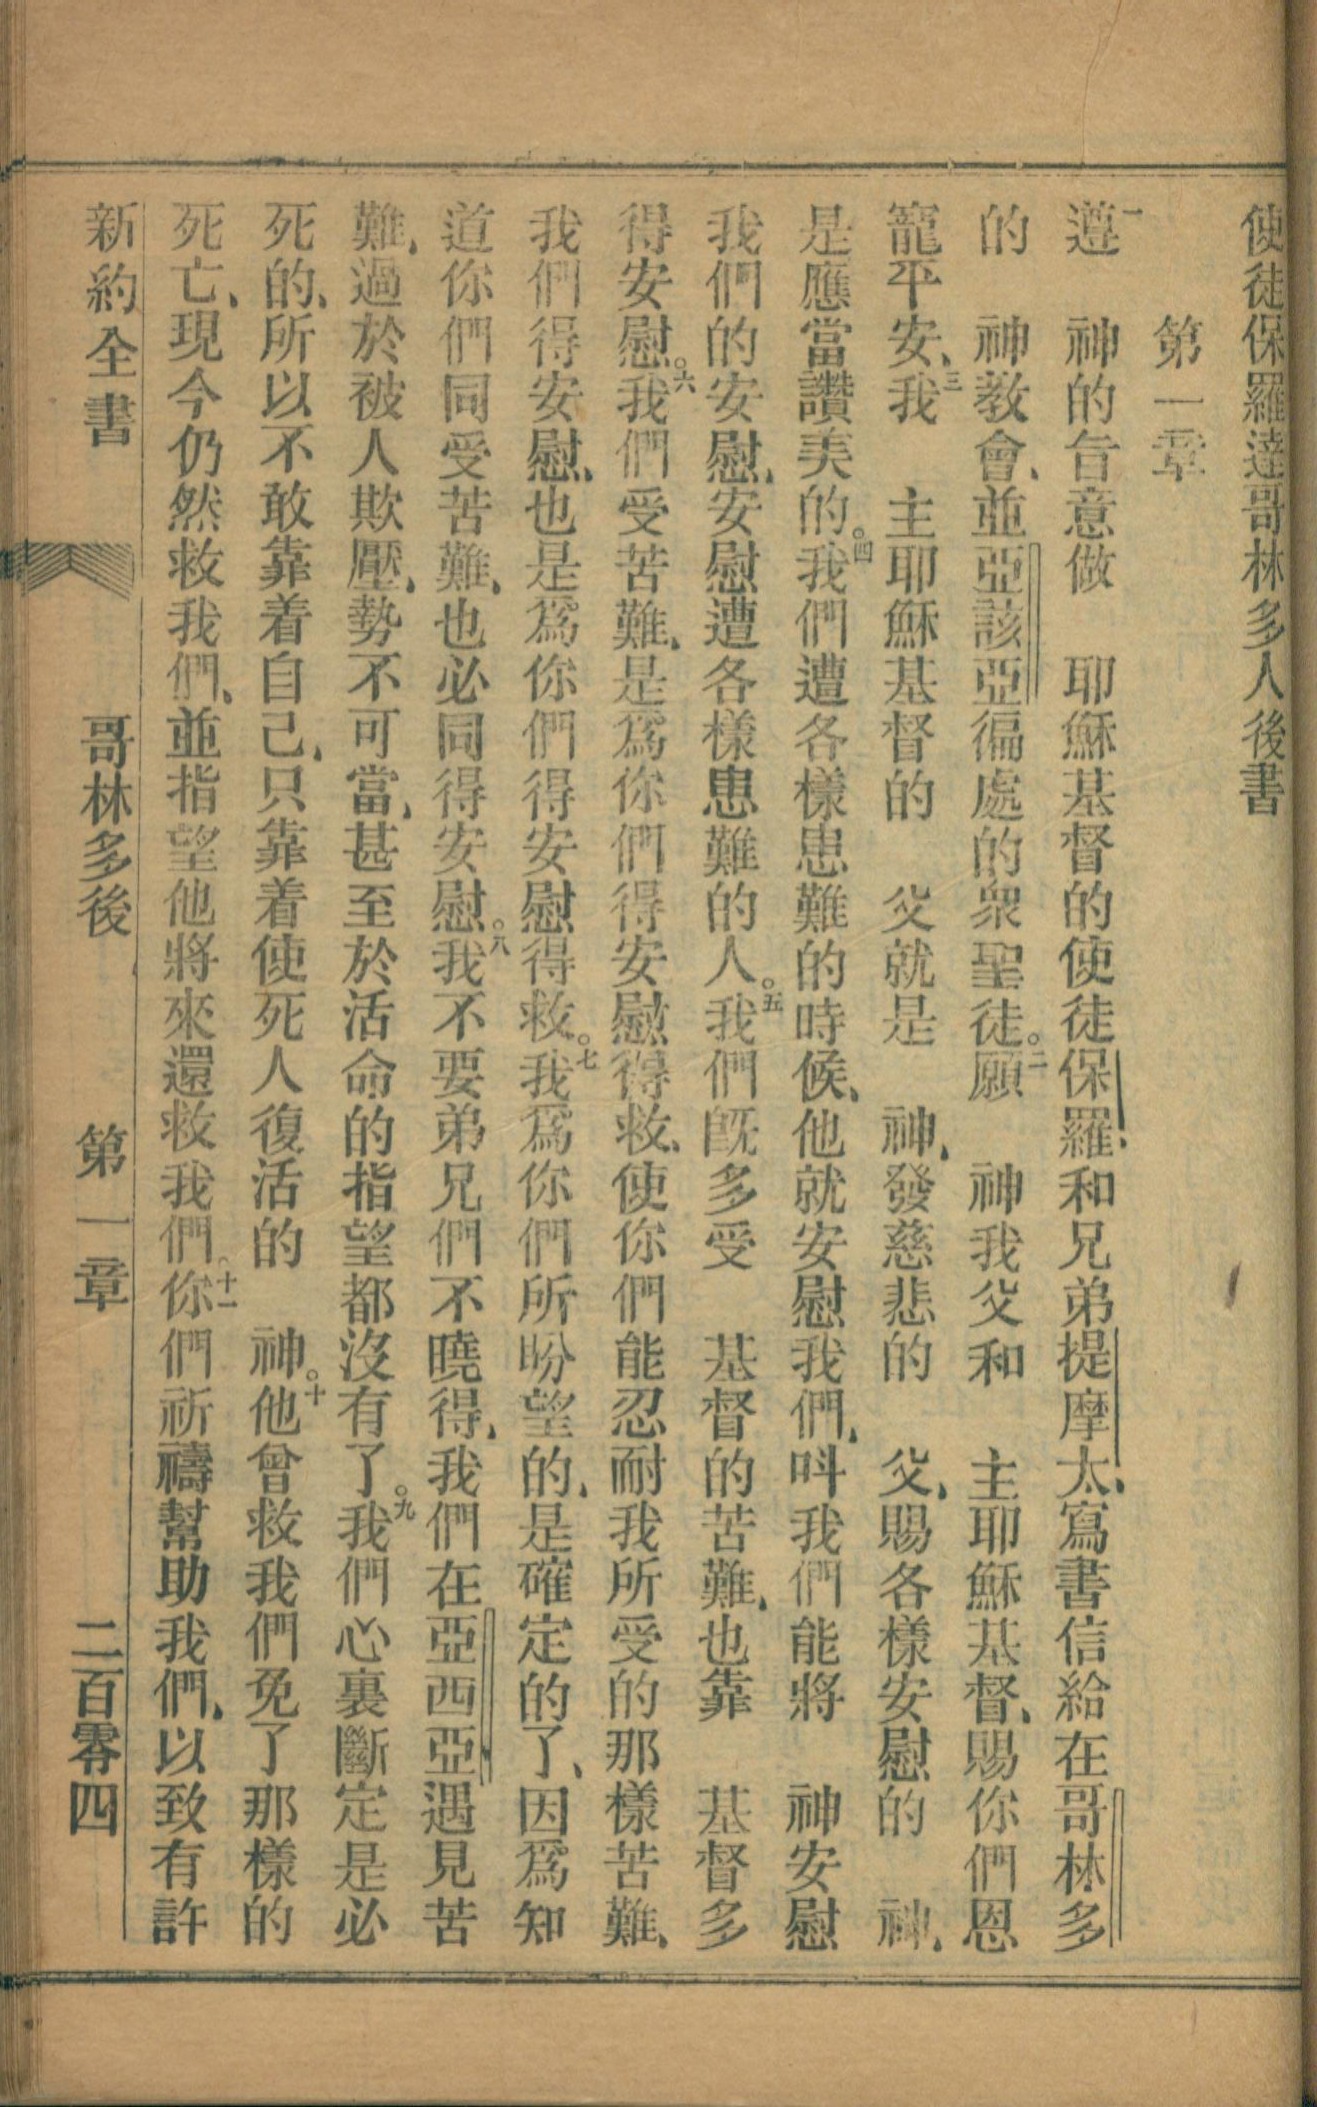 使徒保羅達哥林多人後書
第一章
一遵　神的旨意做　耶穌基督的使徒保羅、和兄弟提摩太、寫書信給在哥林多
的　神教會、並亞該亞徧處的衆聖徒。二願　神我父和　主耶穌基督、賜你們恩
寵平安、三我　主耶穌基督的　父就是　神、發慈悲的　父、賜各樣安慰的　神、
是應當讚美的。四我們遭各樣患難的時候、他就安慰我們、呌我們能將　神安慰
我們的安慰、安慰遭各樣患難的人。五我們旣多受　基督的苦難、也靠　基督多
得安慰。六我們受苦難、是爲你們得安慰得救、使你們能忍耐我所受的那樣苦難、
我們得安慰、也是爲你們得安慰得救。七我爲你們所盼望的、是確定的了、因爲知
道你們同受苦難、也必同得安慰。八我不要弟兄們不曉得、我們在亞西亞遇見苦
難、過於被人欺壓、勢不可當、甚至於活命的指望都沒有了。九我們心裏斷定是必
死的、所以不敢靠着自己、只靠着使死人復活的　神。十他曾救我們免了那樣的
死亡、現今仍然救我們、並指望他將來還救我們。十一你們祈禱幫助我們、以致有許
新約全書　哥林多後　第一章　二百零四